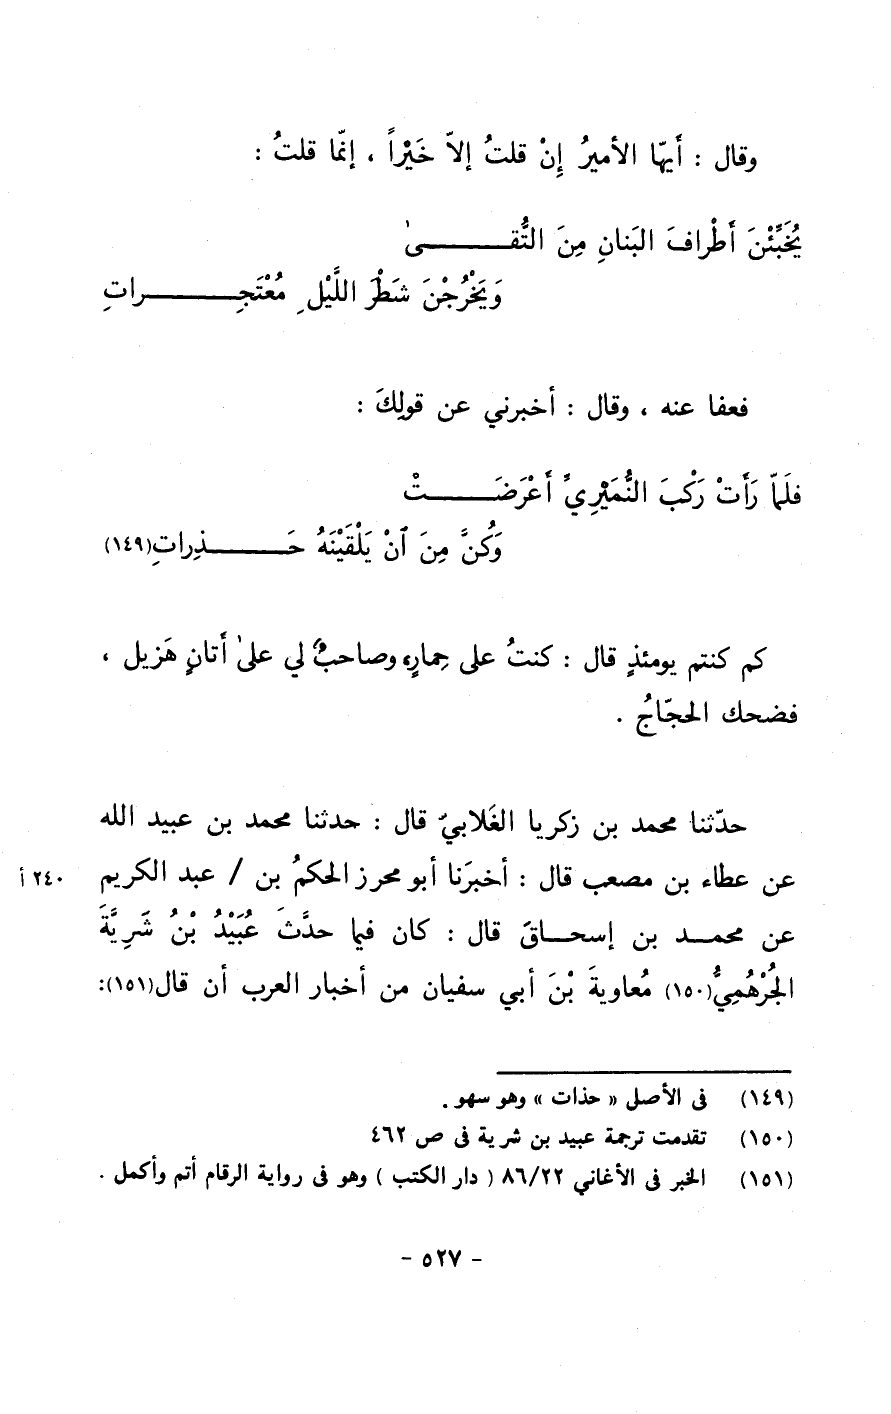 وقال : أيّها الأميرُ إِنْ قلتُ إلاّ خَيْراً ، إنّما قلتُ :
يُخَبِّئْنَ أَطْرافَ البَنانِ مِنَ التُّقــــــــى
وَيَخْرُجْنَ شَطْرَ اللَّيْلِ مُعْتَجِــــــــراتِ
فعفا عنه ، وقال : أخبرني عن قولِكَ :
فلَمّا رَأَتْ رَكْبَ النُّمَيْرِيِّ أَعْرَضَــــــــتْ
وَكُنَّ مِنَ آنْ يَلْقَيْنَهُ حَــــــــذِراتِ(١٤٩)
كم كنتم يومئذٍ قال : كنتُ على حِمارٍ، وصاحبٌ لي على أَتانٍ هَزيل ،
فضحك الحجّاجُ .
حدّثنا محمد بن زكريا الغَلابيّ قال : حدثنا محمد بن عبيد الله
عن عطاء بن مصعب قال : أخبرَنا أبو محرز الحكمُ بن / عبد الكريم ٢٤٠ أ
عن محمــد بن إسحــاقَ قال : كان فيما حدَّثَ عُبَيْدُ بْنُ شَرِيَّةَ
الجُرْهُمِيُّ(١٥٠) مُعاويةَ بْنَ أبي سفيان من أخبار العرب أن قال(١٥١):
(١٤٩) فى الأصل « حذات » وهو سهو .
(١٥٠) تقدمت ترجمة عبيد بن شرية فى ص ٤٦٢
(١٥١) الخبر فى الأغاني ٨٦/٢٢ ( دار الكتب ) وهو فى رواية الرقام أتم وأكمل .
- ٥٢٧ -